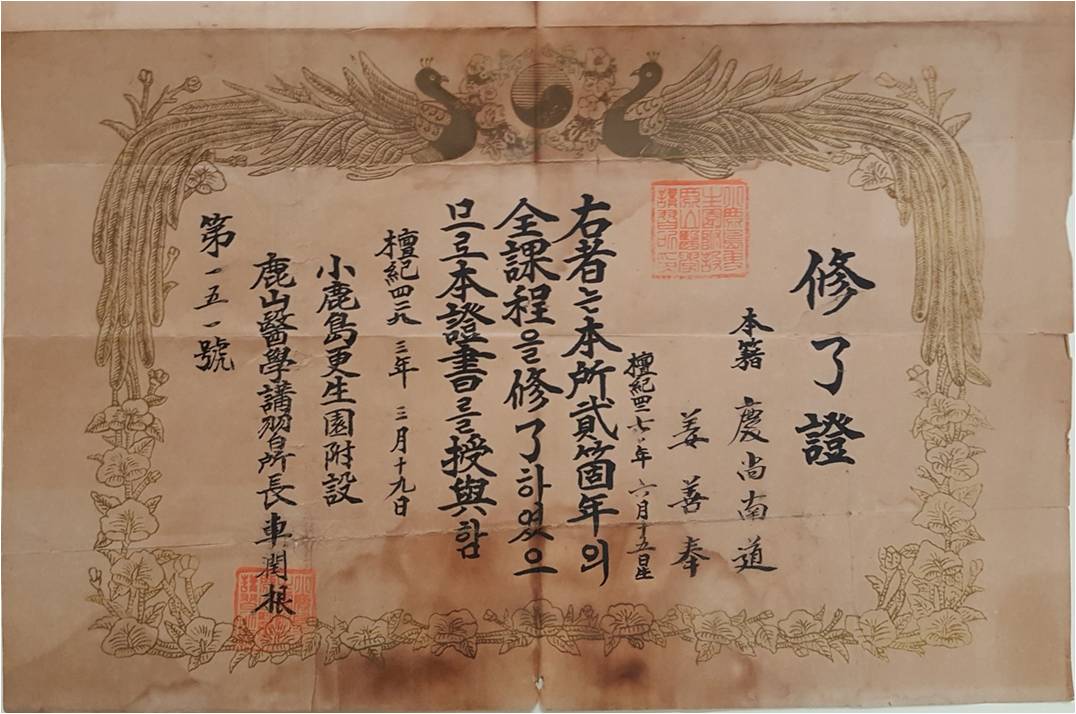 修了證
本籍 慶尚南道
姜善奉
檀紀四二七 年 六月十五日生
右者는本所貳箇年의
全課程을修了하였으
므로本證書를授與함
檀紀四二九三年 三月十九日
小鹿島更生園附設
鹿山醫學講習所長車潤根
第一五一號